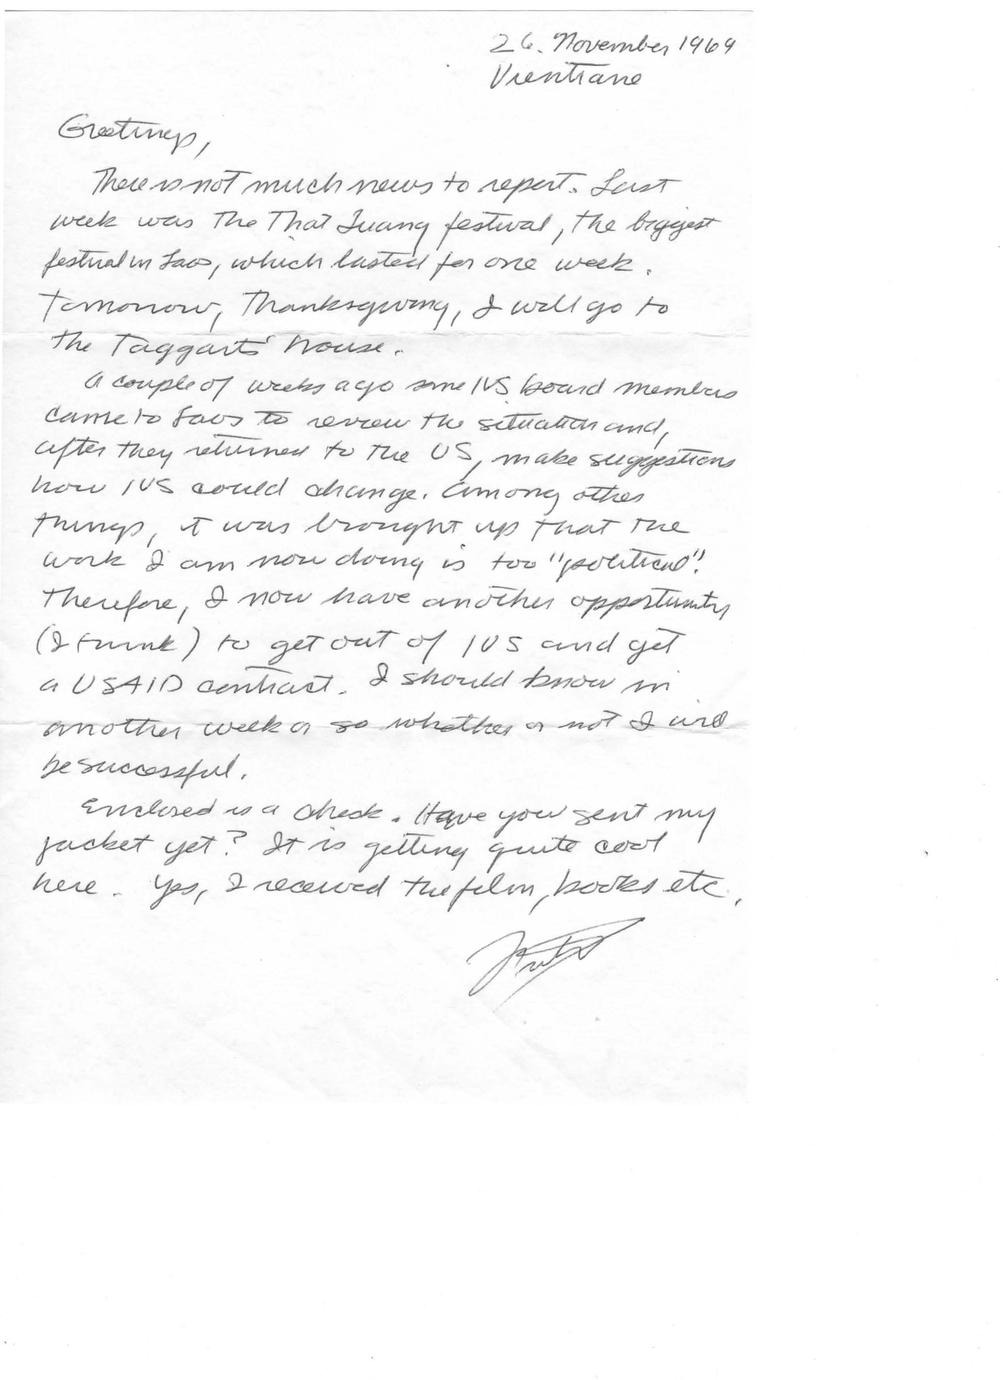 26. November 1969
Vientiane
Greetings,
There is not much news to report. Last
week was the That Luang festival, the biggest
festival in Laos, which lasted for one week.
Tomorrow, Thanksgiving, I will go to
the Taggarts' house.
A couple of weeks ago some IVS board members
came to Laos to review the situation and,
after they returned to the US, make suggestions
how IVS could change. Among other
things, it was brought up that the
work I am now doing is too "political".
Therefore, I now have another opportunity
(I think) to get out of IVS and get
a USAID contract. I should know in
another week or so whether or not I will
be successful.
Enclosed is a check. Have you sent my
jacket yet? It is getting quite cool
here. Yes, I received the film, books etc.